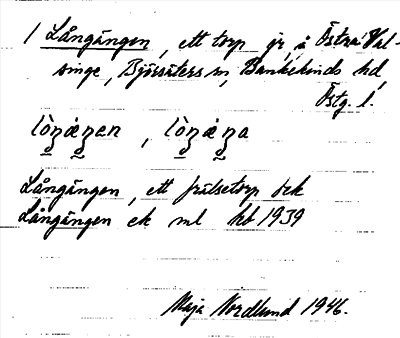 1 Långängen, ett torp y, å Östra Val-
singe, Björsäters sn, Bankekinds hd,
Östg. l.
lòŋäŋen, lòŋäŋa
Långängen, ett frälsetorp Jek
Långängen ek ml hb 1939
Maja Nordlund 1946.